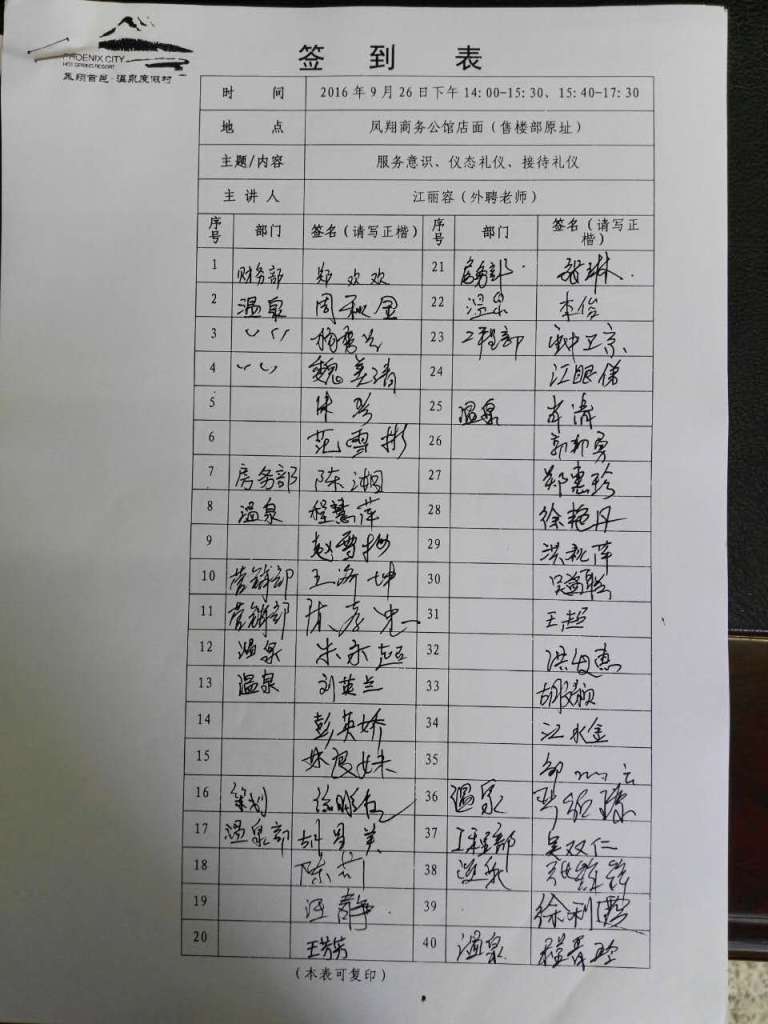 PHOENIX CITY
HOT SPRING RESORT
凤翔首邑·温泉度假村
签到表
时间 2016年9月26日下午14:00-15:30、15:40-17:30
地点 凤翔商务公馆店面（售楼部原址）
主题/内容 服务意识、仪态礼仪、接待礼仪
主讲人 江丽容（外聘老师）
序号 部门 签名（请写正楷） 序号 部门 签名（请写正楷）
1 财务部 郑欢欢 21 房务部 张琳
2 温泉 周秋金 22 温泉 李俊
3 23 工程部
4 魏美清 24 江眼俤
5 朱珍 25 温泉 肖清
6 范雪彬 26 郭邦勇
7 房务部 陈湘 27 郑惠珍
8 温泉 程慧萍 28 徐艳丹
9 赵雪梅 29 洪秋萍
10 营销部 王济坤 30
11 营销部 陈孝忠 31 王超
12 温泉 朱永超 32 洪良惠
13 温泉 刘英兰 33
14 彭英娇 34 江水金
15 林良妹 35
16 策划 36 温泉
17 温泉部 胡昌美 37 工程部 吴双仁
18 陈莉 38 温泉
19 汪静 39 徐利霞
20 王芳芳 40 温泉 程春玲
（本表可复印）